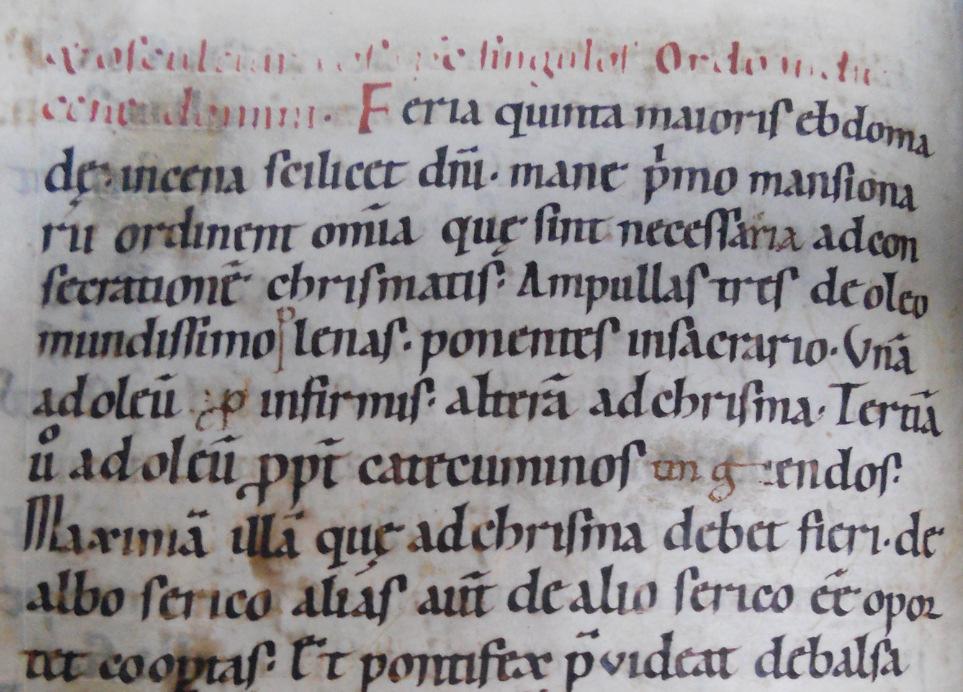 exosculetur singulos Ordo in die
cene domini. Feria quinta maioris ebdoma
dę. incena scilicet dn̄i. mane p̍mo mansiona
rii ordinent om̄ia quę sint necessaria adcon
secrationē chrismatis. Ampullas tres deoleo
mundissimo plenas. ponentes insacrario. Vnā
adoleū ꝓ infirmis. alterā adchrisma. Tertiā
ůadoleū ꝓpt̄ catecuminos ungendos.
Maximā illā quę adchrisma debet fieri. de
albo serico alias aut̄ dealio serico ēē opor
tet cooptas. Et pontifex p̄videat debalsa